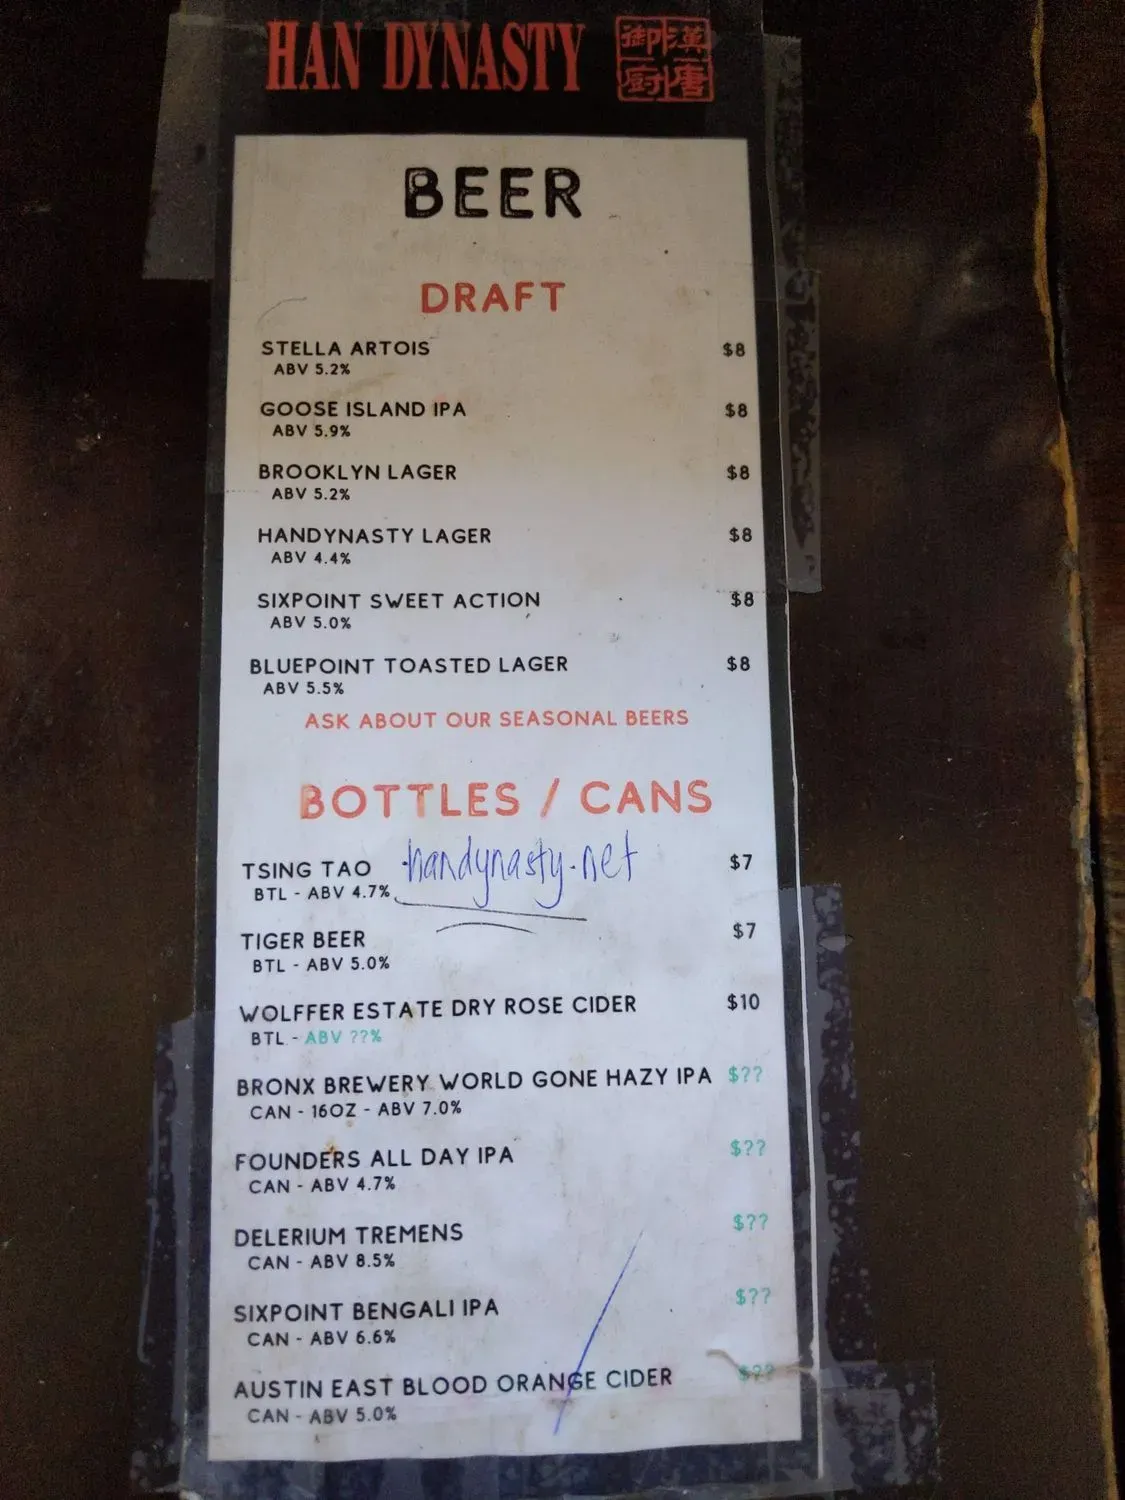 HAN DYNASTY 御漢厨唐
BEER
DRAFT
STELLA ARTOIS $8
ABV 5.2%
GOOSE ISLAND IPA $8
ABV 5.9%
BROOKLYN LAGER $8
ABV 5.2%
HANDYNASTY LAGER $8
ABV 4.4%
SIXPOINT SWEET ACTION $8
ABV 5.0%
BLUEPOINT TOASTED LAGER $8
ABV 5.5%
ASK ABOUT OUR SEASONAL BEERS
BOTTLES / CANS
TSING TAO handynasty.net $7
BTL - ABV 4.7%
TIGER BEER $7
BTL - ABV 5.0%
WOLFFER ESTATE DRY ROSE CIDER $10
BTL - ABV ??%
BRONX BREWERY WORLD GONE HAZY IPA $??
CAN - 16OZ - ABV 7.0%
FOUNDERS ALL DAY IPA $??
CAN - ABV 4.7%
DELERIUM TREMENS $??
CAN - ABV 8.5%
SIXPOINT BENGALI IPA $??
CAN - ABV 6.6%
AUSTIN EAST BLOOD ORANGE CIDER $??
CAN - ABV 5.0%